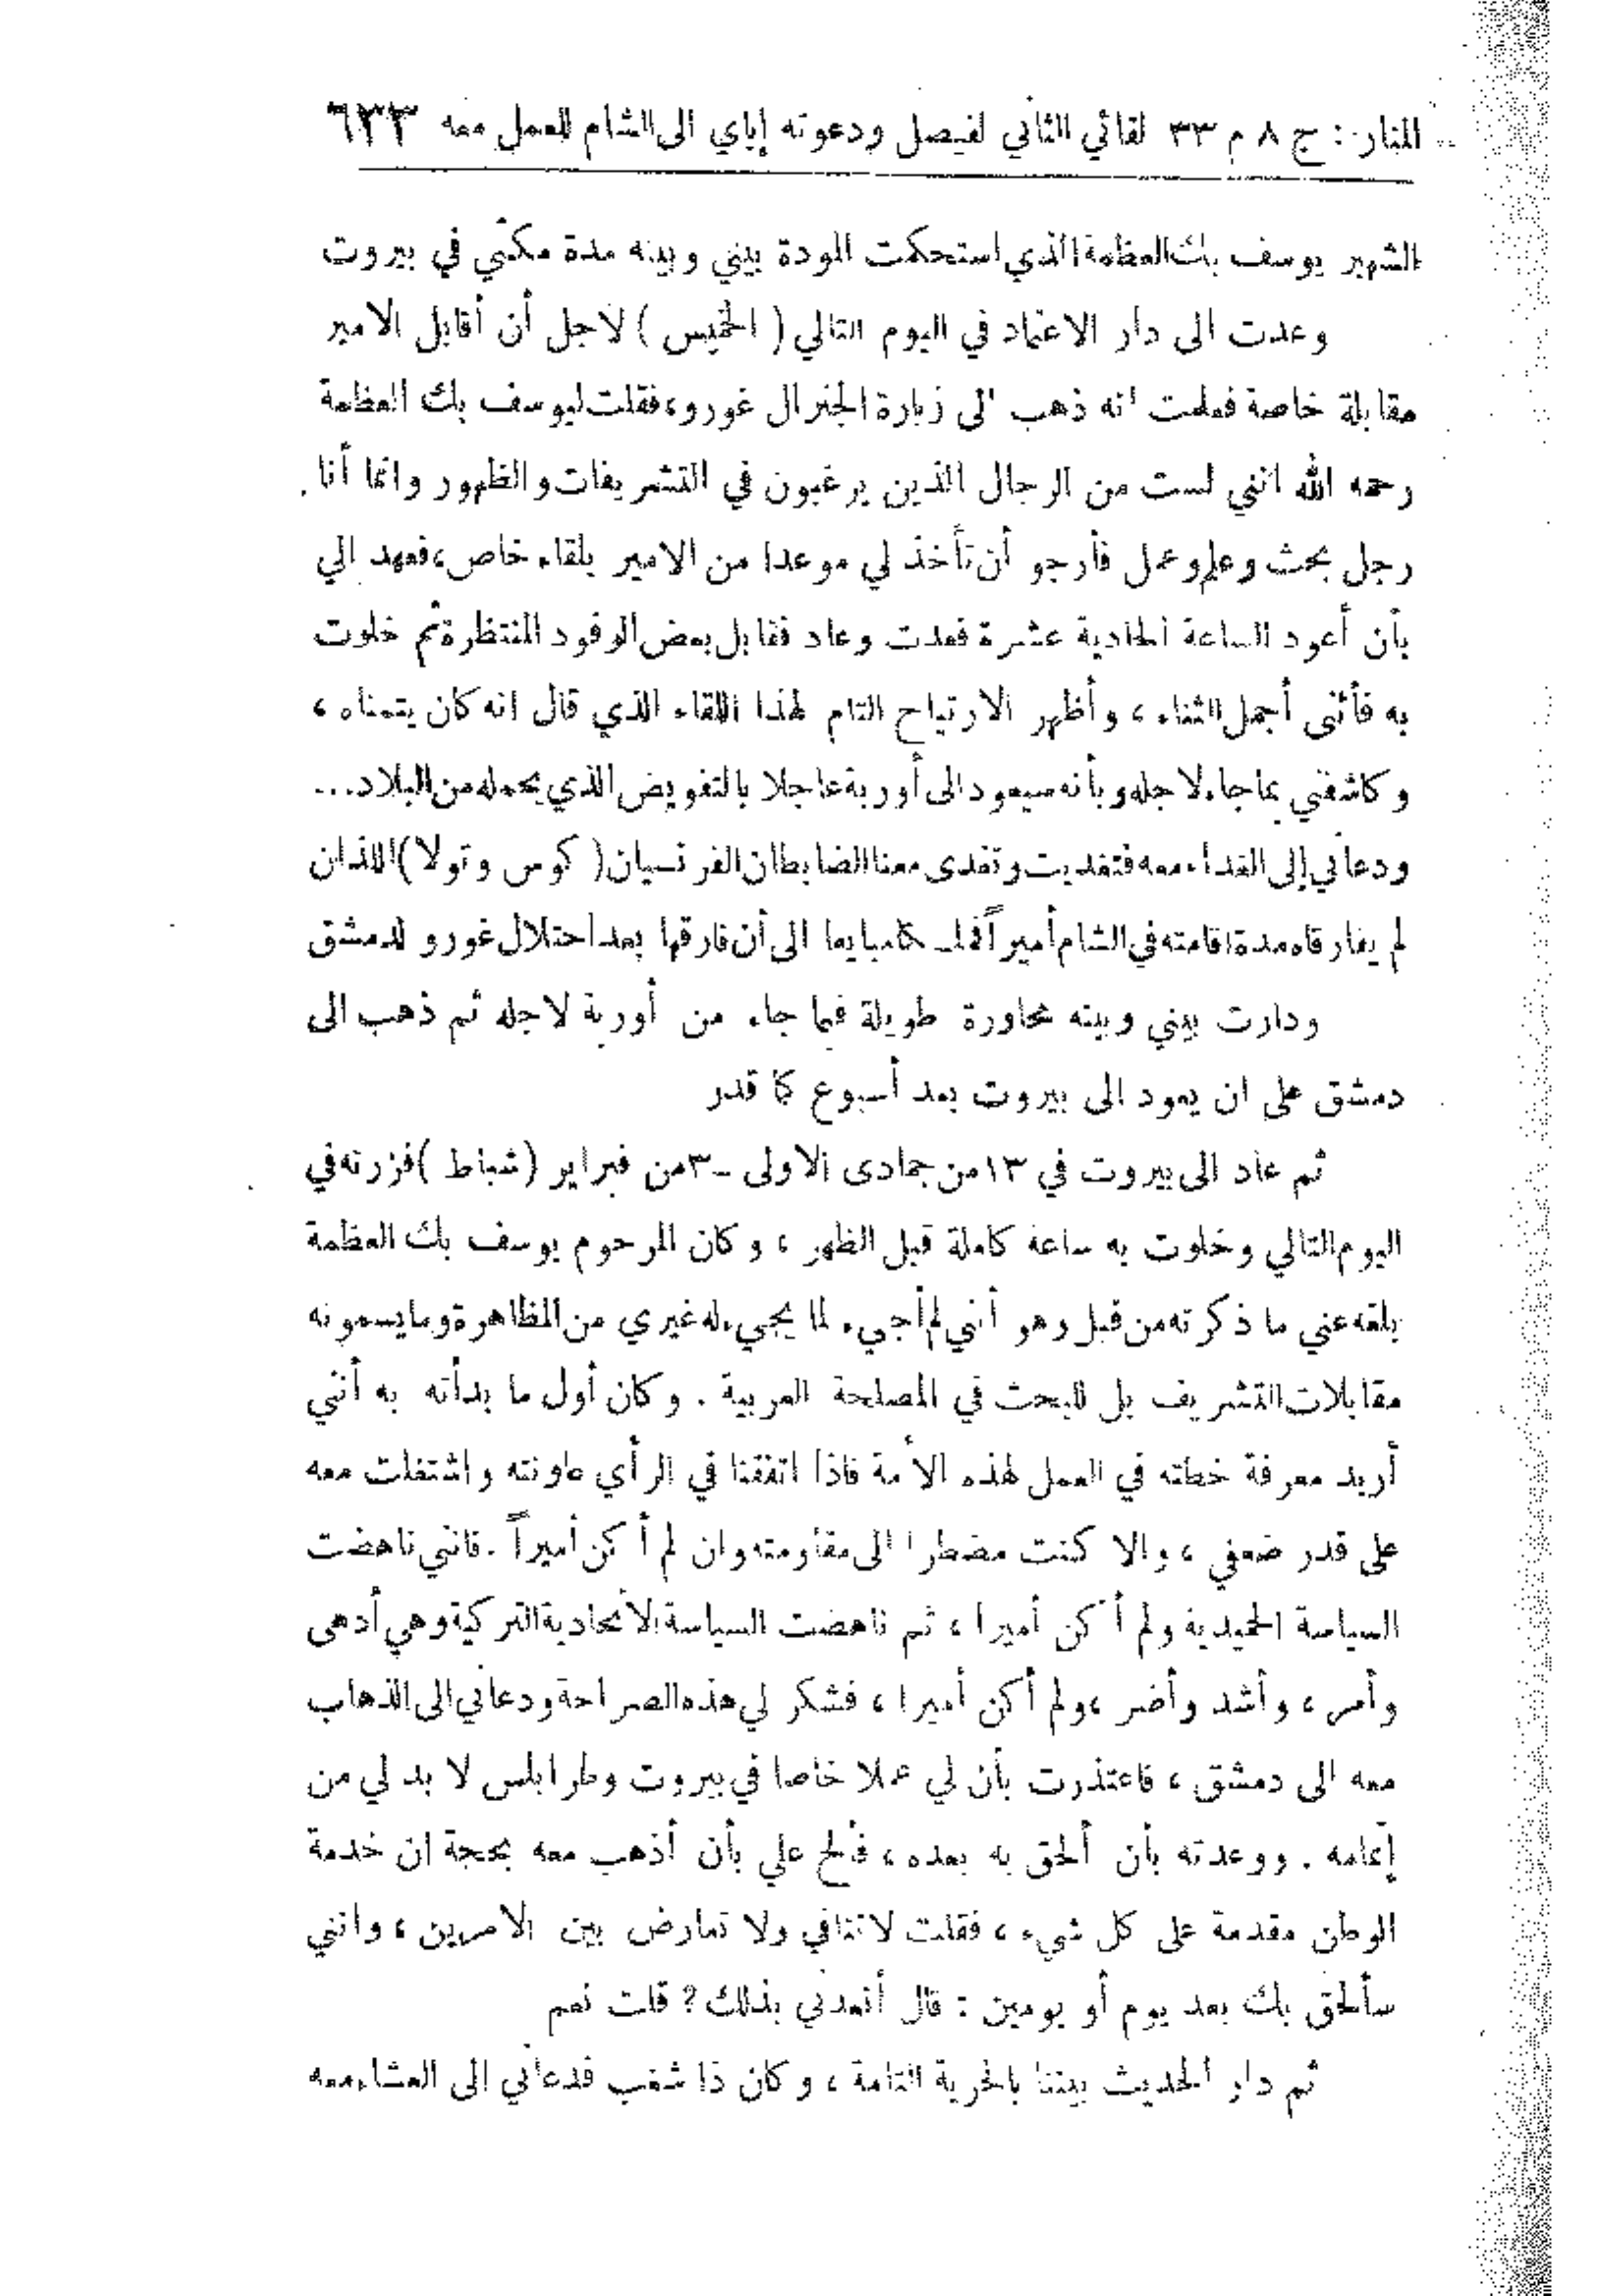 المنار : ج ٨ م ٣٣ لقائي الثاني لفيصل ودعوته إياي الى الشام للعمل معه ٦٢٣
الشهير يوسف بك العظمة الذي استحكمت المودة بيني وبينه مدة مكثي في بيروت
وعدت الى دار الاعتماد في اليوم التالي ( الخميس ) لاجل أن أقابل الامير
مقابلة خاصة فعلمت انه ذهب الى زيارة الجنرال غورو ، فقلت ليوسف بك العظمة
رحمه الله انني لست من الرجال الذين يرغبون في التشريفات والظهور وانما أنا
رجل بحث وعلم وعمل فأرجو أن تأخذ لي موعدا من الامير بلقاء خاص ، فعهد الي
بأن أعود الساعة الحادية عشرة فعدت وعاد فقابل بعض الوفود المنتظرة ثم خلوت
به فأثنى أجمل الثناء ، وأظهر الارتياح التام لهذا اللقاء الذي قال انه كان يتمناه ،
وكاشفني بما جاء لاجله وبأنه سيعود الى أوربة عاجلا بالتفويض الذي يحمله من البلاد...
ودعاني إلى الغداء معه فتغديت وتغدى معنا الضابطان الفرنسيان ( كوس وتولا ) اللذان
لم يفارقاه مدة اقامته في الشام أميراً فملكا مبايعا الى أن فارقها بعد احتلال غورو لدمشق
ودارت بيني وبينه محاورة طويلة فيما جاء من أوربة لاجله ثم ذهب الى
دمشق على ان يعود الى بيروت بعد أسبوع كما قدر
ثم عاد الى بيروت في ١٣ من جمادى الاولى ــ ٣ من فبراير ( شباط ) فزرته في
اليوم التالي وخلوت به ساعة كاملة قبل الظهر ، وكان المرحوم يوسف بك العظمة
بلغه عني ما ذكرته من قبل وهو أنني لم أجيء لما يجيء له غيري من المظاهرة وما يسمونه
مقابلات التشريف بل للبحث في المصلحة العربية . وكان أول ما بدأته به أنني
أريد معرفة خطته في العمل لهذه الأمة فاذا اتفقنا في الرأي عاونته واشتغلت معه
على قدر ضعفي ، والا كنت مضطرا الى مقاومته وان لم أكن أميراً . فانني ناهضت
السياسة الحميدية ولم أكن أميرا ، ثم ناهضت السياسة الاتحادية التركية وهي أدهى
وأمر ، وأشد وأضر ، ولم أكن أميرا ، فشكر لي هذه الصراحة ودعاني الى الذهاب
معه الى دمشق ، فاعتذرت بأن لي عملا خاصا في بيروت وطرابلس لا بد لي من
إتمامه . ووعدته بأن ألحق به بعده ، فألح علي بأن أذهب معه بحجة ان خدمة
الوطن مقدمة على كل شيء ، فقلت لا تنافي ولا تعارض بين الامرين ، وانني
سألحق بك بعد يوم أو يومين : قال أتعدني بذلك ؟ قلت نعم
ثم دار الحديث بيننا بالحرية التامة ، وكان ذا شغب فدعاني إلى العشاء معه